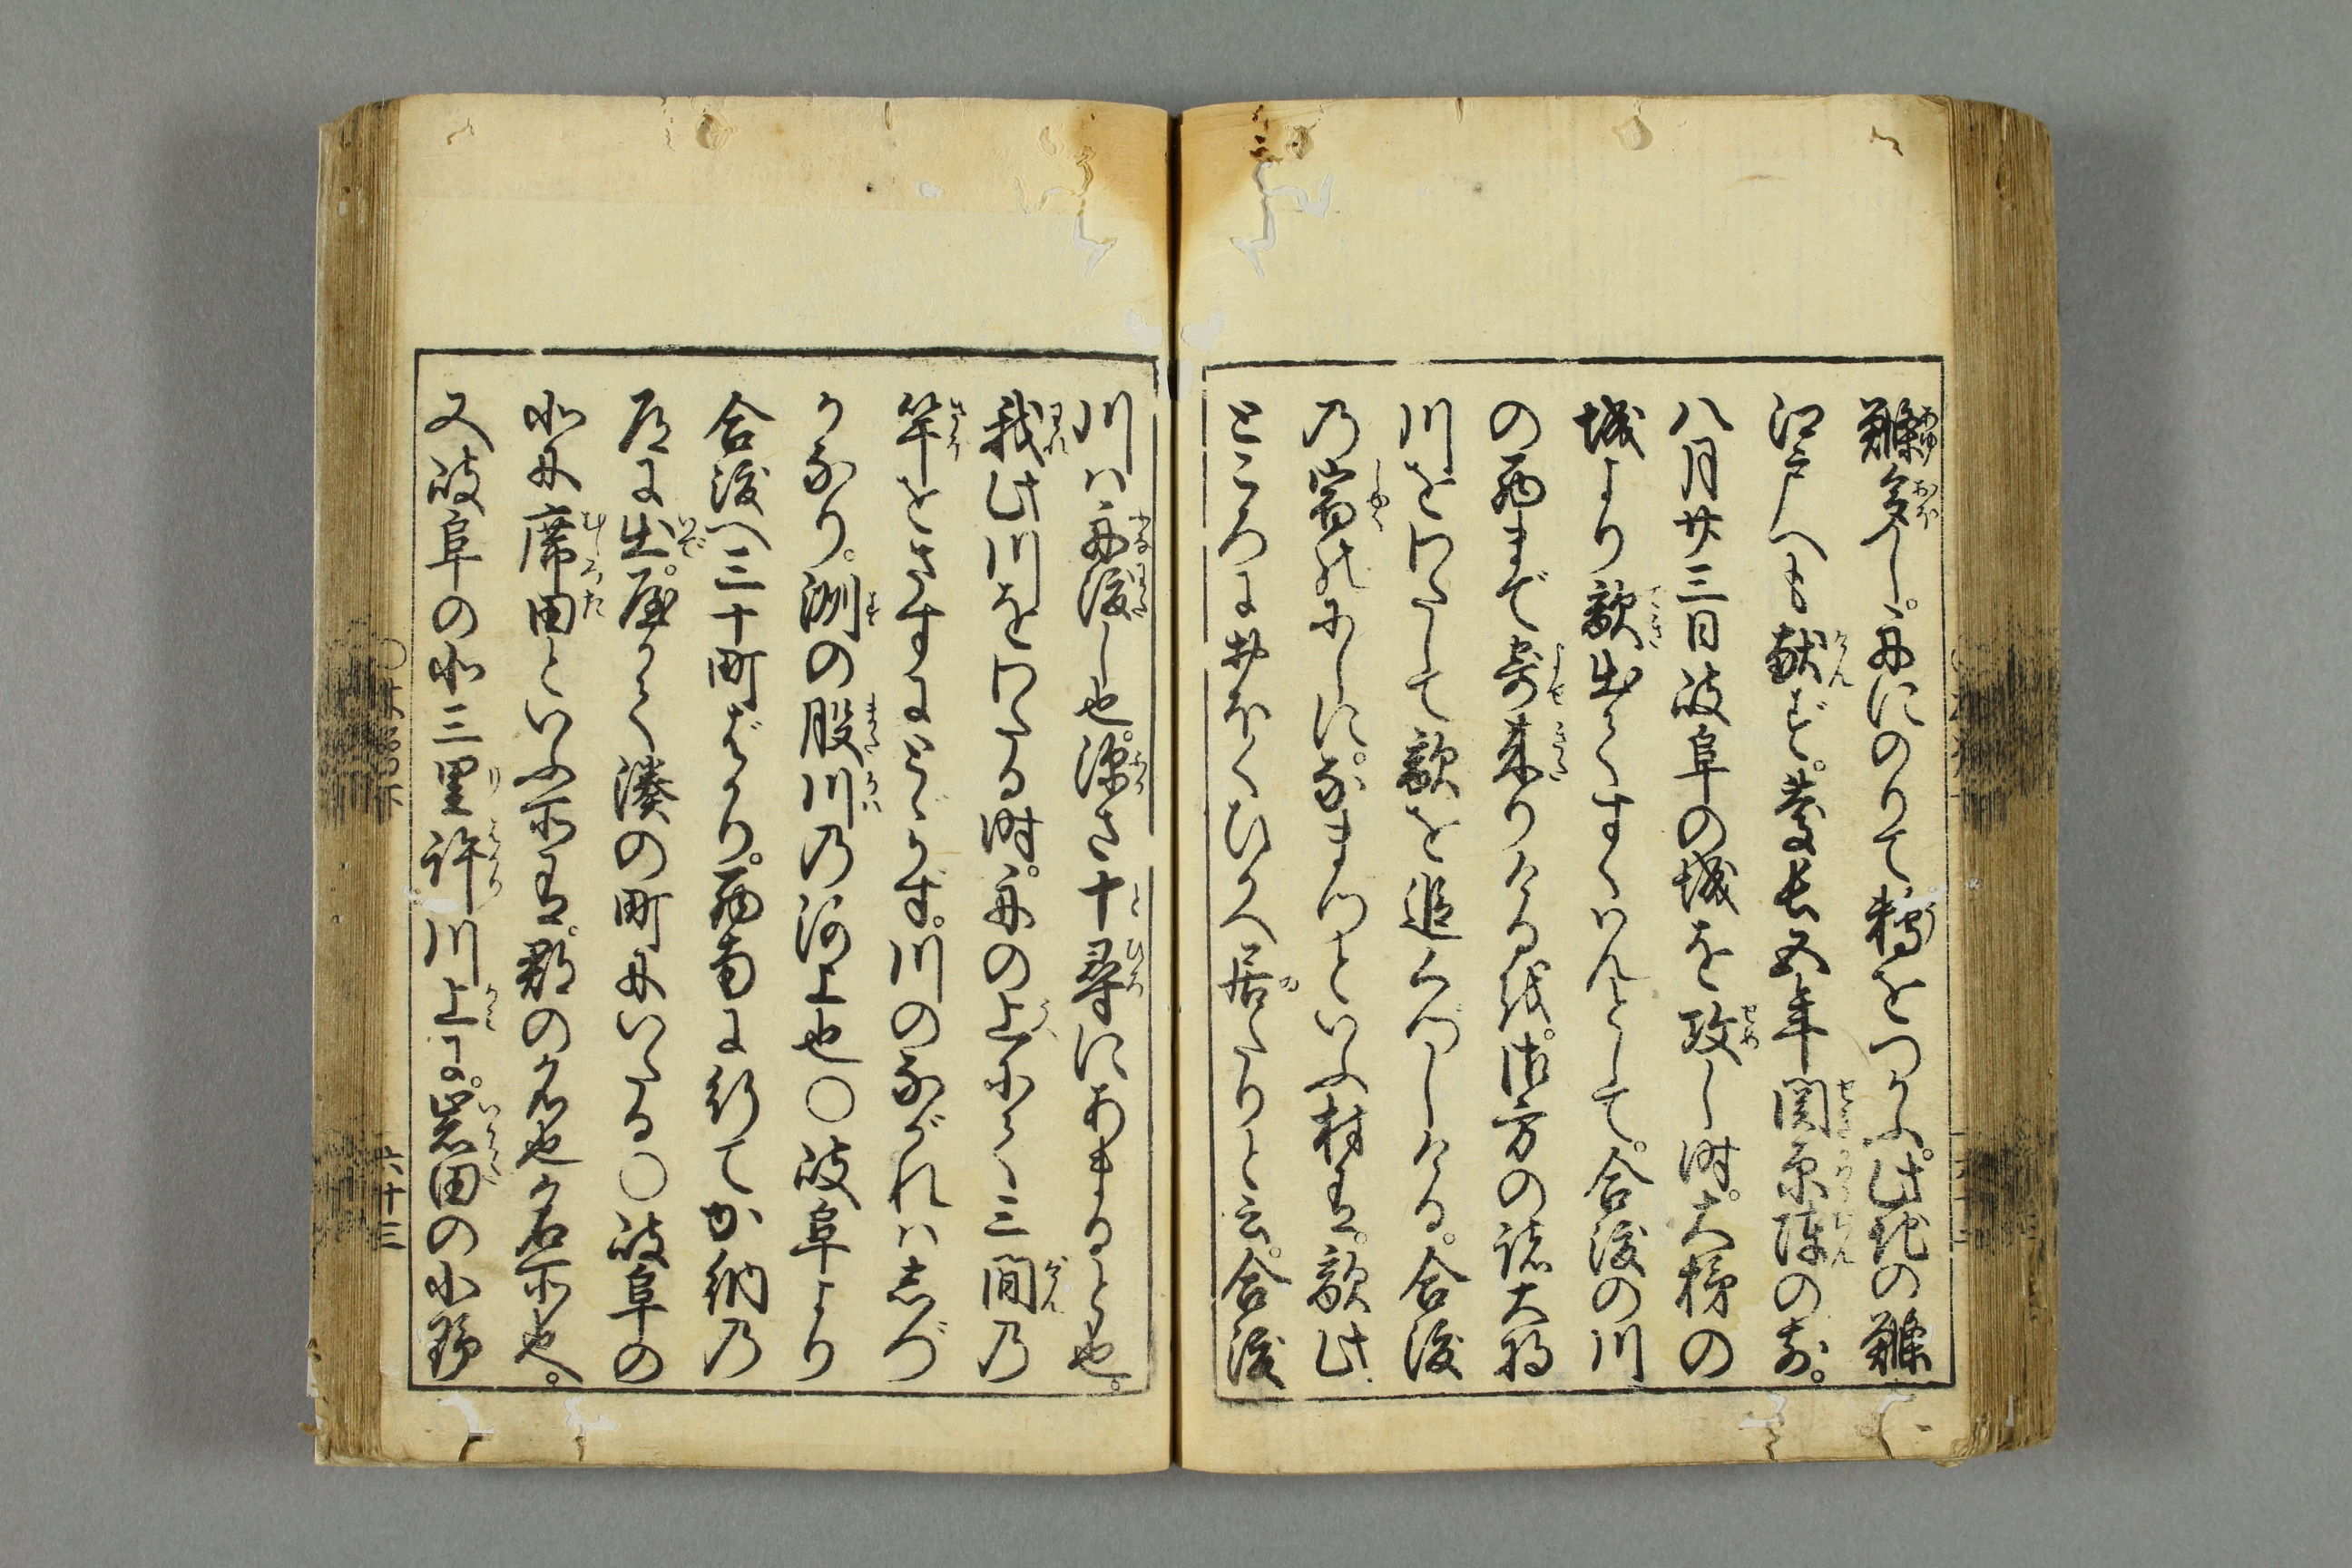 鰷多し。舟にのりて鵜をつかふ。此地の鰷
江戸へも献ず。慶長五年関原陣の前。
八月廿三日岐阜の城を攻し時。大柿の
城より敵出てすくはんとして。合渡の川
の西まで寄来りけるを。御方の諸大将
川をわたして敵を追くづしける。合渡
の宿の西に。なまづといふ村有。敵此
ところにおほくひかへ居たりと云。合渡
川は舟渡し也。深さ十尋にあまると也。
我此川をわたる時。舟の上にて三間の
竿をさすにとゞかず。川のながれはしづ
かなり。洲の股川の河上也〇岐阜より
合渡へ三十町ばかり。西南に行てか納の
尾に出。屋かく湊の町にいたる〇岐阜の
北に席田といふ所有。郡の名也名所也。
又岐阜の北三里許川上に。岩田の小野
六十三